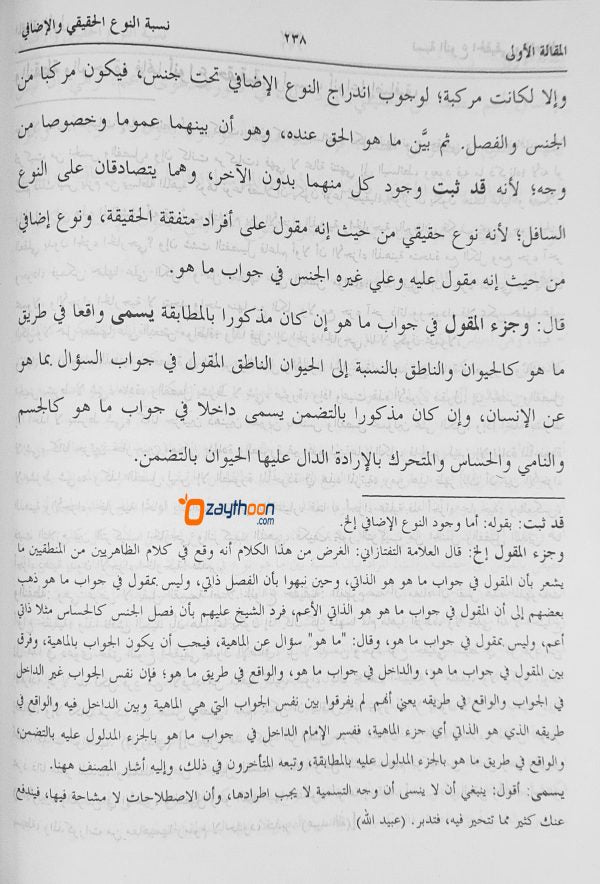 المقالة الأولى ٢٣٨ نسبة النوع الحقيقي والإضافي
وإلا لكانت مركبة؛ لوجوب اندراج النوع الإضافي تحت جنس، فيكون مركبا من
الجنس والفصل. ثم بيَّن ما هو الحق عنده، وهو أن بينهما عموما وخصوصا من
وجه؛ لأنه قد ثبت وجود كل منهما بدون الآخر، وهما يتصادقان على النوع
السافل؛ لأنه نوع حقيقي من حيث إنه مقول على أفراد متفقة الحقيقة، ونوع إضافي
من حيث إنه مقول عليه وعلي غيره الجنس في جواب ما هو.
قال: وجزء المقول في جواب ما هو إن كان مذكورا بالمطابقة يسمى واقعا في طريق
ما هو كالحيوان والناطق بالنسبة إلى الحيوان الناطق المقول في جواب السؤال بما هو
عن الإنسان، وإن كان مذكورا بالتضمن يسمى داخلا في جواب ما هو كالجسم
والنامي والحساس والمتحرك بالإرادة الدال عليها الحيوان بالتضمن.
zaythoon
.com
قد ثبت: بقوله: أما وجود النوع الإضافي إلخ.
وجزء المقول إلخ: قال العلامة التفتازاني: الغرض من هذا الكلام أنه وقع في كلام الظاهريين من المنطقيين ما
يشعر بأن المقول في جواب ما هو هو الذاتي، وحين نبهوا بأن الفصل ذاتي، وليس بمقول في جواب ما هو ذهب
بعضهم إلى أن المقول في جواب ما هو هو الذاتي الأعم، فرد الشيخ عليهم بأن فصل الجنس كالحساس مثلا ذاتي
أعم، وليس بمقول في جواب ما هو، وقال: "ما هو" سؤال عن الماهية، فيجب أن يكون الجواب بالماهية، وفرق
بين المقول في جواب ما هو، والداخل في جواب ما هو، والواقع في طريق ما هو؛ فإن نفس الجواب غير الداخل
في الجواب والواقع في طريقه يعني أنهم لم يفرقوا بين نفس الجواب التي هي الماهية وبين الداخل فيه والواقع في
طريقه الذي هو الذاتي أي جزء الماهية، ففسر الإمام الداخل في جواب ما هو بالجزء المدلول عليه بالتضمن؛
والواقع في طريق ما هو بالجزء المدلول عليه بالمطابقة، وتبعه المتأخرون في ذلك، وإليه أشار المصنف ههنا.
يسمى: أقول: ينبغي أن لا ينسى أن وجه التسمية لا يجب اطرادها، وأن الاصطلاحات لا مشاحة فيها، فيندفع
عنك كثير مما تتحير فيه، فتدبر. (عبيد الله)